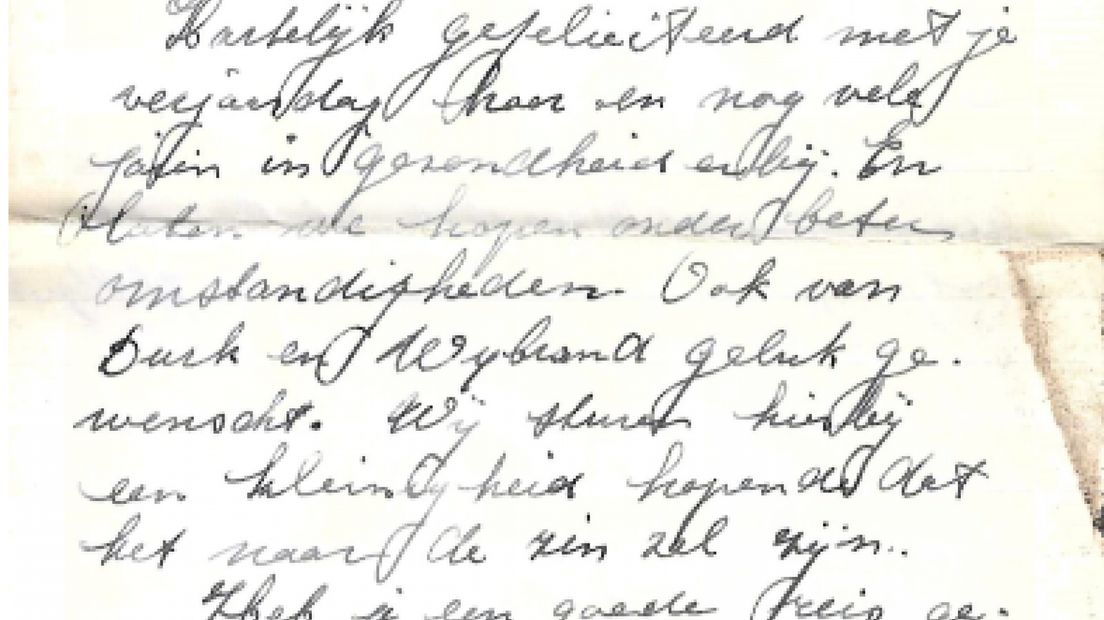 Hartelijk gefeliciteerd met je
verjaardag hoor en nog vele
jaren in gezondheid erbij. En
laten we hopen onder beter
omstandigheden. Ook van
Durk en Wybrand geluk ge-
wenscht. Wij sturen hierbij
een kleinigheid hopende dat
het naar de zin zal zijn..
Heb je een goede reis ge-